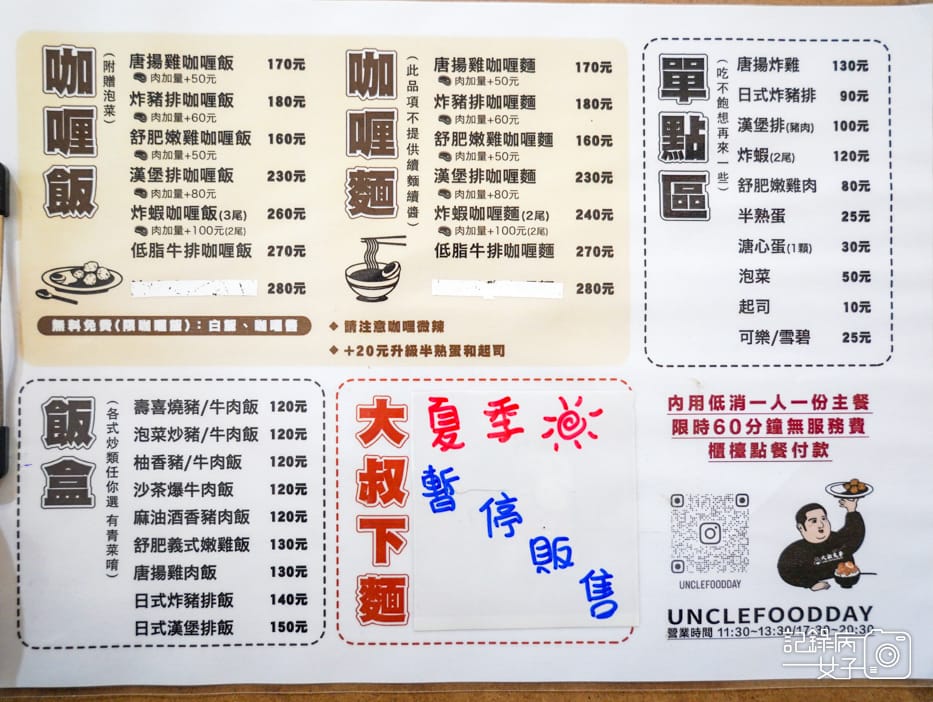 咖喱飯
(附贈泡菜)
唐揚雞咖喱飯 170元
肉加量+50元
炸豬排咖喱飯 180元
肉加量+60元
舒肥嫩雞咖喱飯 160元
肉加量+50元
漢堡排咖喱飯 230元
肉加量+80元
炸蝦咖喱飯(3尾) 260元
肉加量+100元(2尾)
低脂牛排咖喱飯 270元
280元
無料免費(限咖喱飯):白飯、咖喱醬
咖喱麵
(此品項不提供續麵續醬)
唐揚雞咖喱麵 170元
肉加量+50元
炸豬排咖喱麵 180元
肉加量+60元
舒肥嫩雞咖喱麵 160元
肉加量+50元
漢堡排咖喱麵 230元
肉加量+80元
炸蝦咖喱麵(2尾) 240元
肉加量+100元(2尾)
低脂牛排咖喱麵 270元
280元
❖ 請注意咖喱微辣
❖ +20元升級半熟蛋和起司
單點區
(吃不飽想再來一些)
唐揚炸雞 130元
日式炸豬排 90元
漢堡排(豬肉) 100元
炸蝦(2尾) 120元
舒肥嫩雞肉 80元
半熟蛋 25元
溏心蛋(1顆) 30元
泡菜 50元
起司 10元
可樂/雪碧 25元
飯盒
(各式炒類任你選 有青菜唷)
壽喜燒豬/牛肉飯 120元
泡菜炒豬/牛肉飯 120元
柚香豬/牛肉飯 120元
沙茶爆牛肉飯 120元
麻油酒香豬肉飯 120元
舒肥義式嫩雞飯 130元
唐揚雞肉飯 130元
日式炸豬排飯 140元
日式漢堡排飯 150元
大叔下麵
夏季
暫停販售
內用低消一人一份主餐
限時60分鐘無服務費
櫃檯點餐付款
UNCLEFOODDAY
UNCLEFOODDAY
營業時間 11:30~13:30/17:30~20:30
記錄病女子